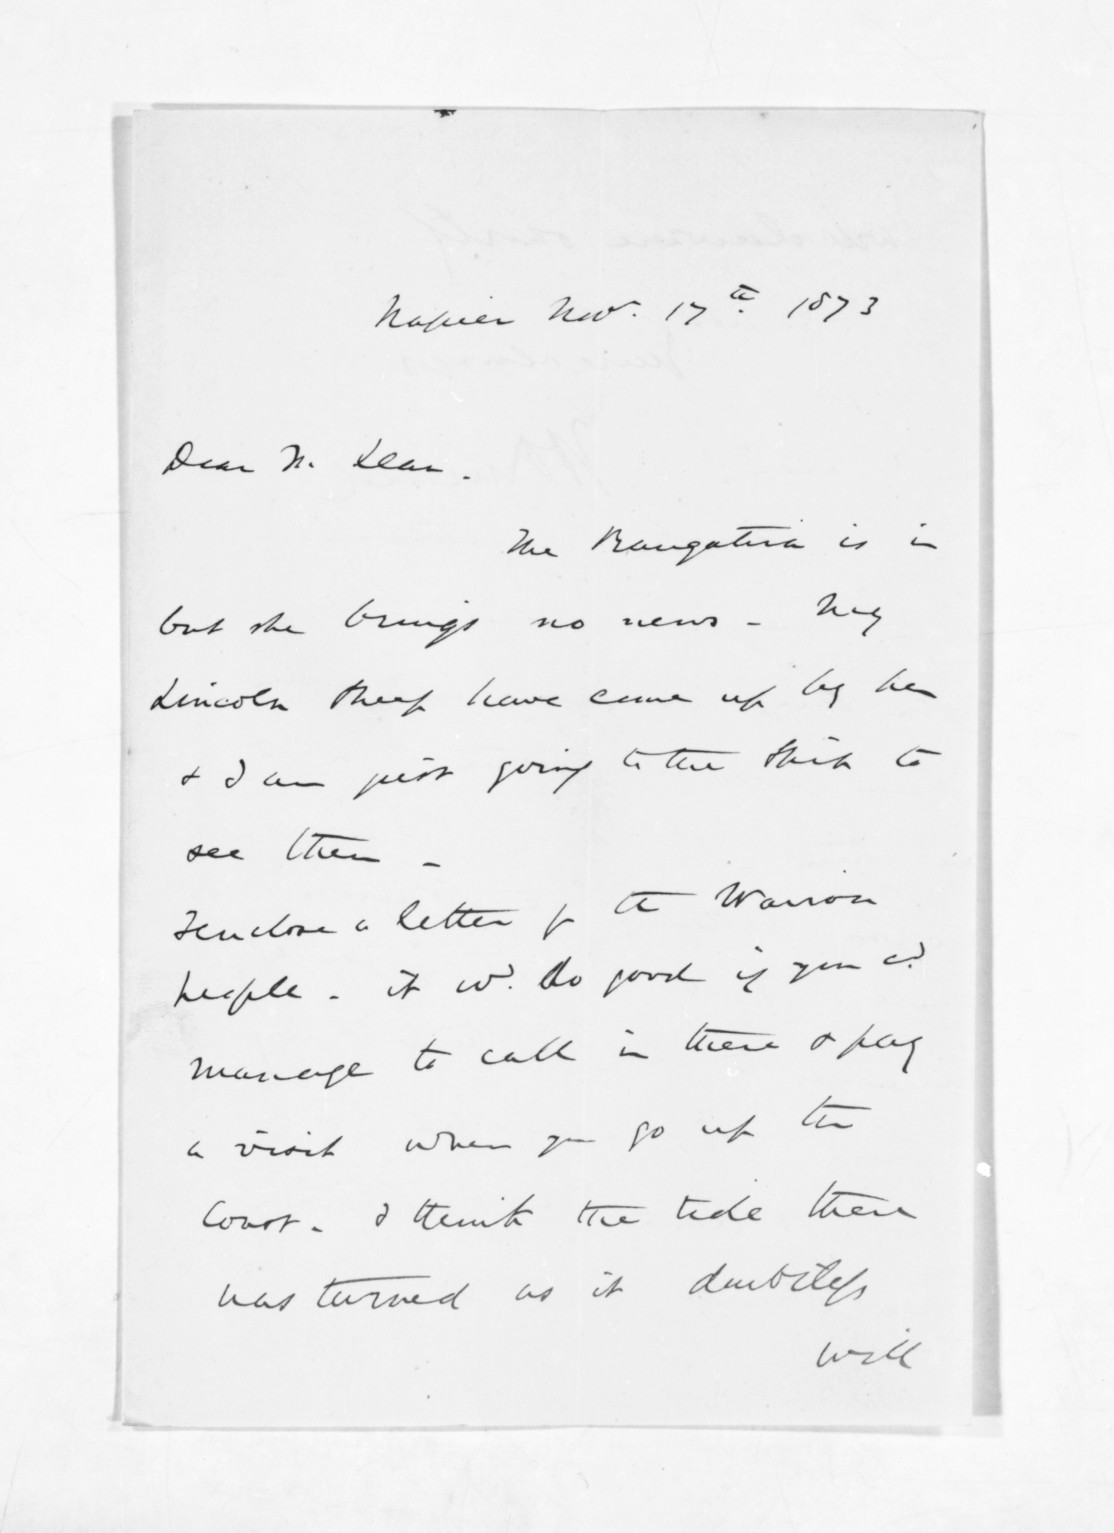 Napier Nov. 17th. 1873
Dear McLean.
The Rangatira is in
but she brings no news - My
Lincoln Sheep have come up by her
& I am just going to the Ship to
see them -
I enclose a letter fr the Wairoa
people - it wd. do good if you cd
manage to call in there & pay
a visit when you go up the
Coast - I think the tide there
has turned as it doubtless
will